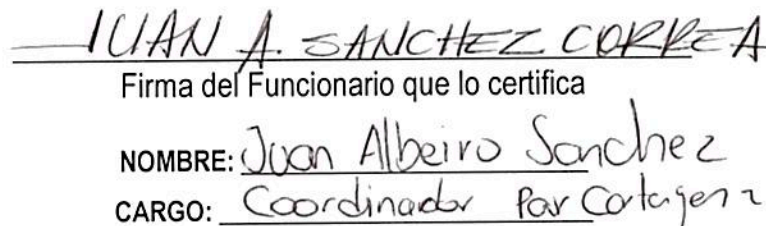 JUAN A. SANCHEZ CORREA
Firma del Funcionario que lo certifica
NOMBRE: Juan Albeiro Sanchez
CARGO: Coordinador Par Cartagena